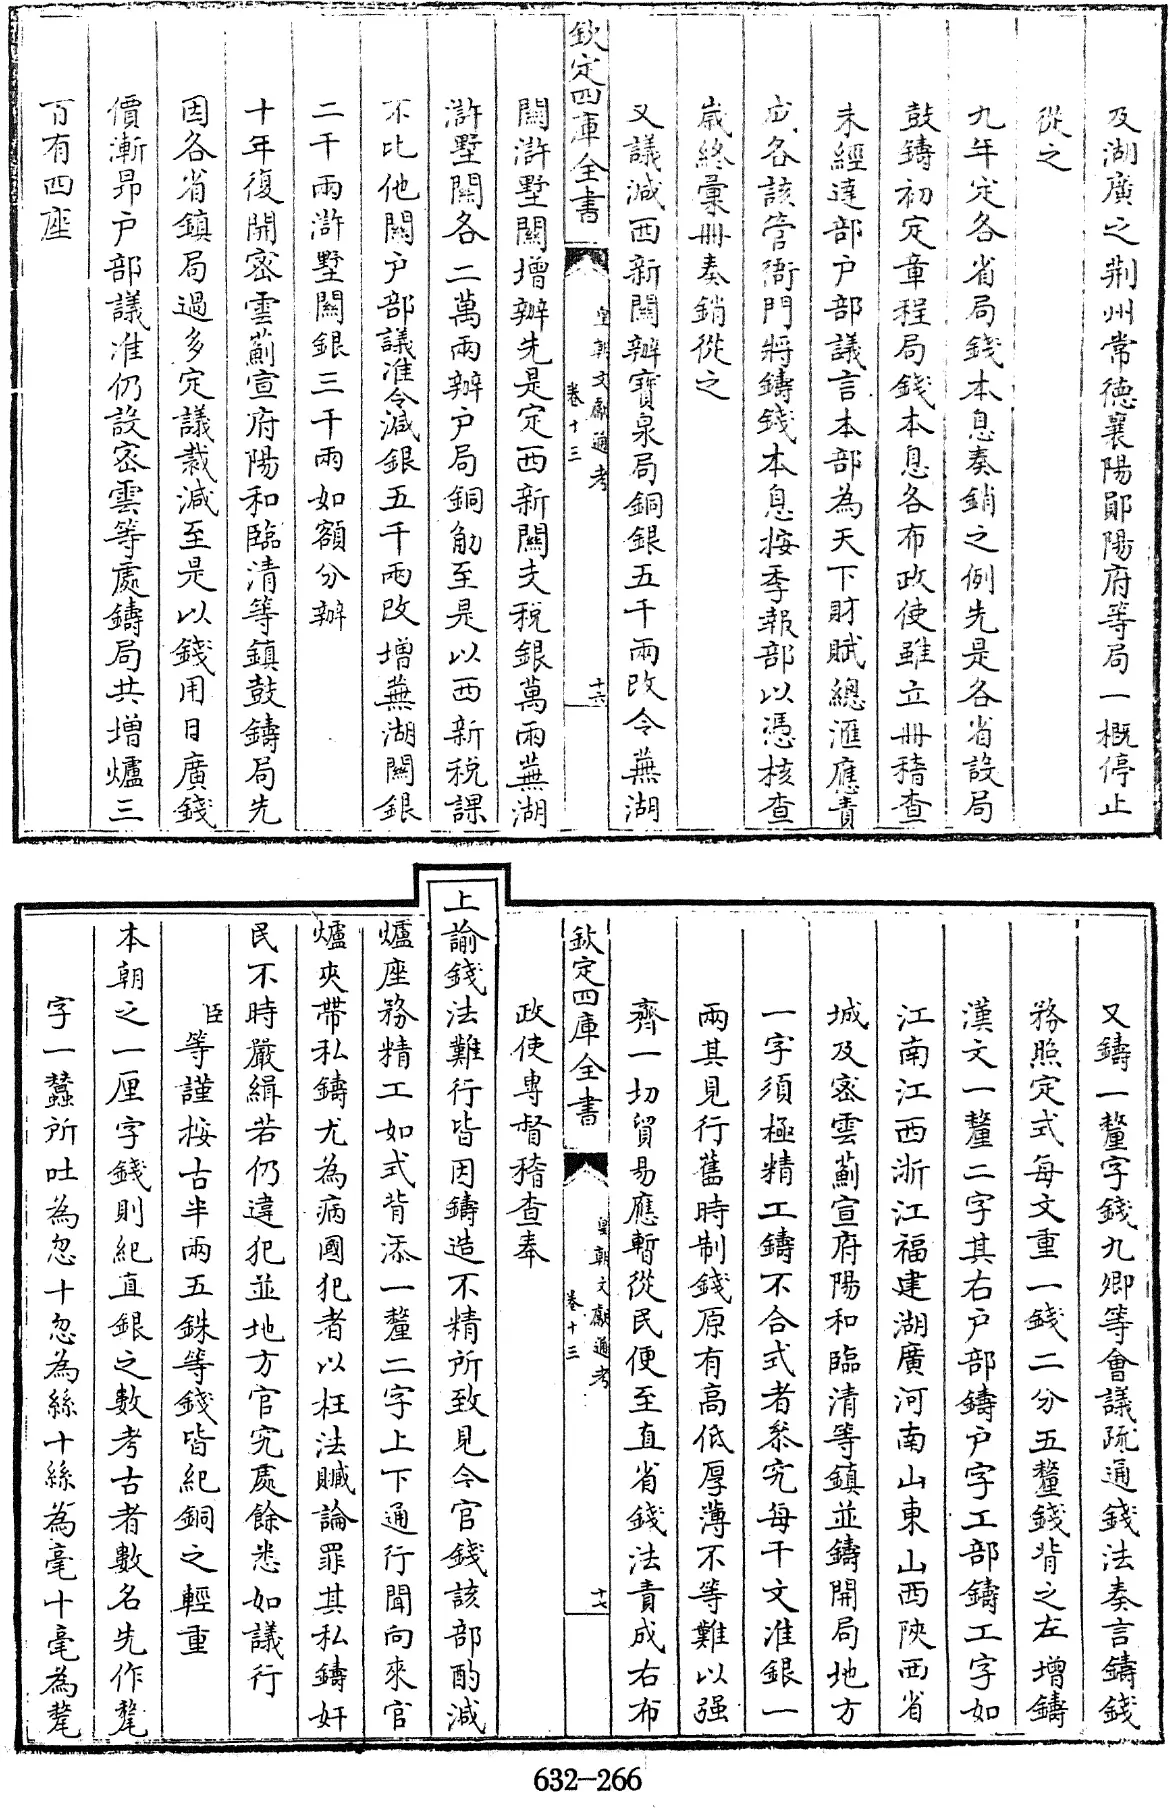 及湖廣之荆州常德襄陽鄖陽府等局一概停止
從之
九年定各省局錢本息奏銷之例先是各省設局
鼓鑄初定章程局錢本息各布政使雖立冊稽查
未經達部户部議言本部為天下財賦總滙應責
成各該管衙門將鑄錢本息按季報部以憑核查
歳終彚冊奏銷從之
又議減西新關辦寳泉局銅銀五千兩改令蕪湖
欽定四庫全書
皇朝文獻通考
卷十三
十六
關滸墅關増辦先是定西新關支税銀萬兩蕪湖
滸墅關各二萬兩辦户局銅觔至是以西新税課
不比他關户部議准令減銀五千兩改増蕪湖關銀
二千兩滸墅關銀三千兩如額分辦
十年復開宻雲薊宣府陽和臨清等鎮鼓鑄局先
因各省鎮局過多定議裁減至是以錢用日廣錢
價漸昻户部議准仍設宻雲等處鑄局共増爐三
百有四座
又鑄一釐字錢九卿等會議疏通錢法奏言鑄錢
務照定式每文重一錢二分五釐錢背之左增鑄
漢文一釐二字其右户部鑄户字工部鑄工字如
江南江西浙江福建湖廣河南山東山西陜西省
城及宻雲薊宣府陽和臨清等鎮並鑄開局地方
一字須極精工鑄不合式者叅究每千文准銀一
兩其見行舊時制錢原有高低厚薄不等難以强
齊一切貿易應暫從民便至直省錢法責成右布
欽定四庫全書
皇朝文獻通考
卷十三
十七
政使專督稽查奉
上諭錢法難行皆因鑄造不精所致見今官錢該部酌減
爐座務精工如式背添一釐二字上下通行聞向來官
爐夾帶私鑄尤為病國犯者以枉法贓論罪其私鑄奸
民不時嚴緝若仍違犯並地方官究處餘悉如議行
臣等謹按古半兩五銖等錢皆紀銅之輕重
本朝之一厘字錢則紀直銀之數考古者數名先作氂
字一蠶所吐為忽十忽為絲十絲為毫十毫為氂
632-266